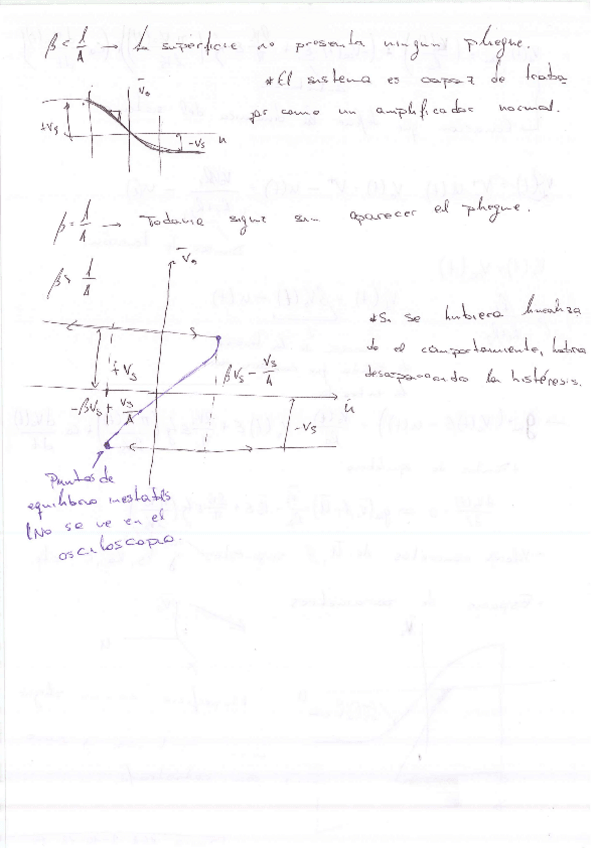 β < 1/A → La superficie no presenta ningún pliegue.
* El sistema es capaz de traba
jar como un amplificador normal.
V̄o
+Vs
-Vs
u
β = 1/A → Todavía sigue sin aparecer el pliegue.
β > 1/A
V̄o
* Si se hubiera lineariza
do el comportamiento, habría
desaparecido la histéresis.
+Vs
βVs - Vs/A
ū
-βVs + Vs/A
-Vs
Puntos de
equilibrio inestables
(No se ve en el
osciloscopio.